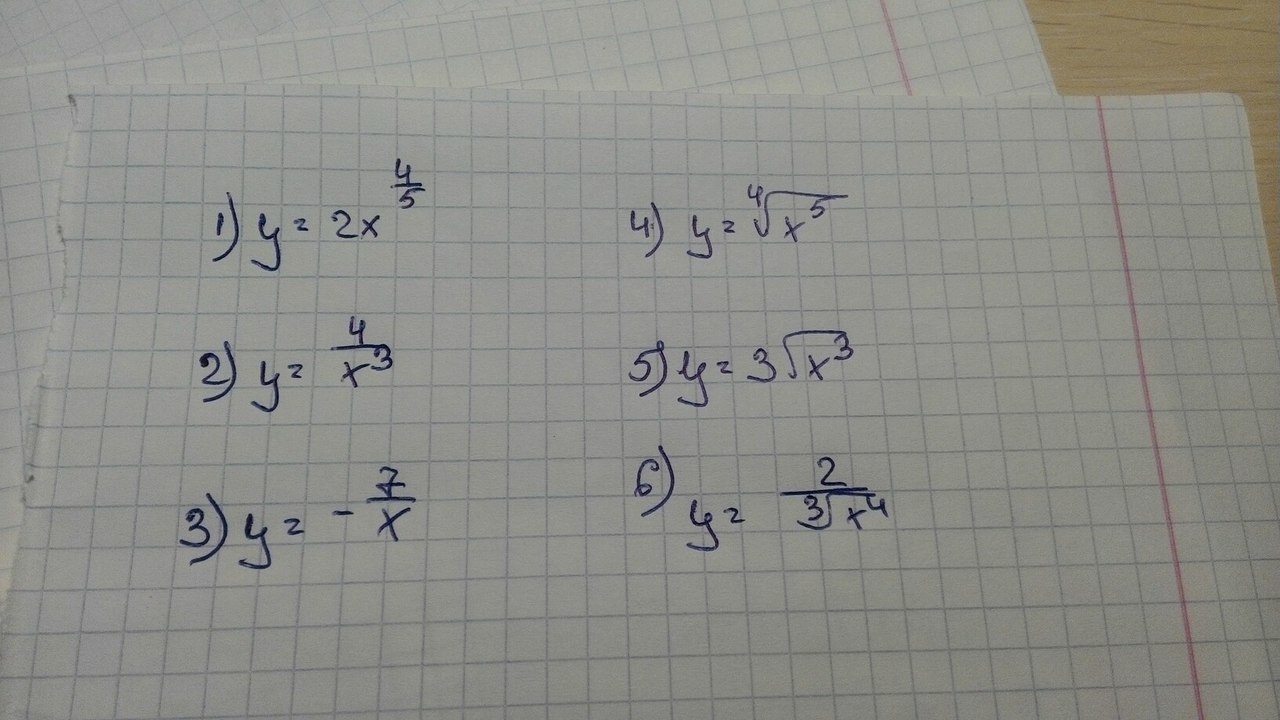 1) y = 2x^(4/5)
2) y = 4/x³
3) y = - 7/x
4) y = ⁴√(x⁵)
5) y = 3√(x³)
6) y = 2/(3√(x⁴))